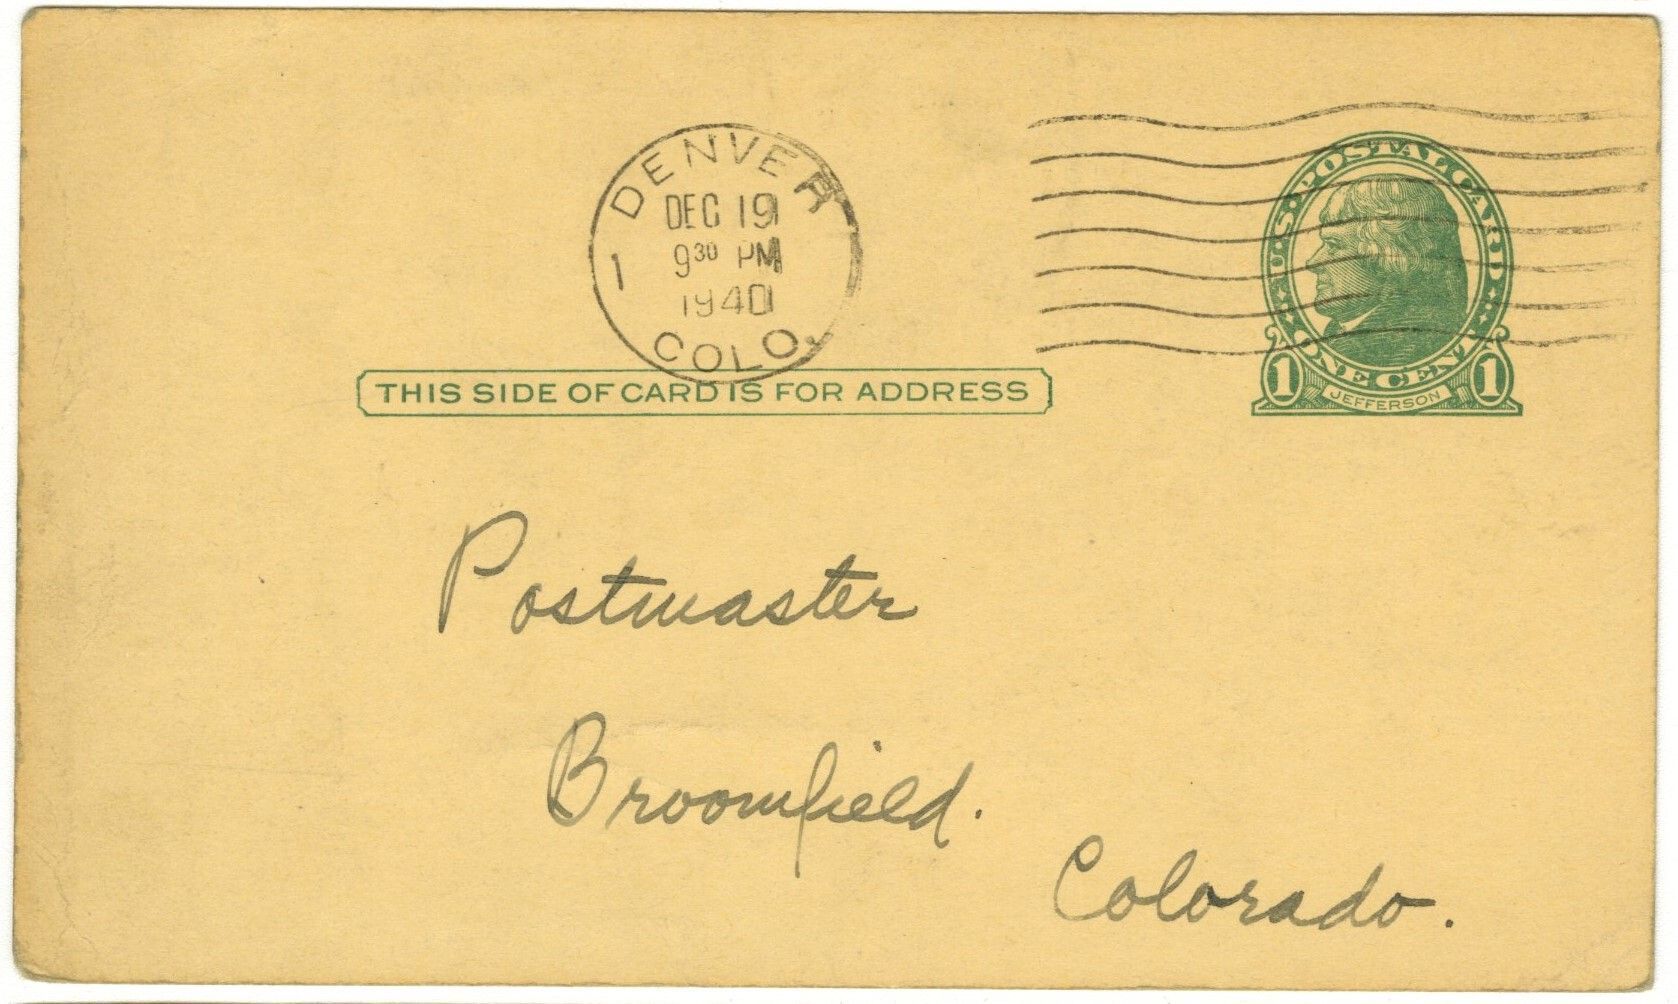 DENVER
DEC 19
9 30 PM
1940
1
COLO.
U.S. POSTAL CARD
ONE CENT
1 JEFFERSON 1
THIS SIDE OF CARD IS FOR ADDRESS
Postmaster
Broomfield.
Colorado.